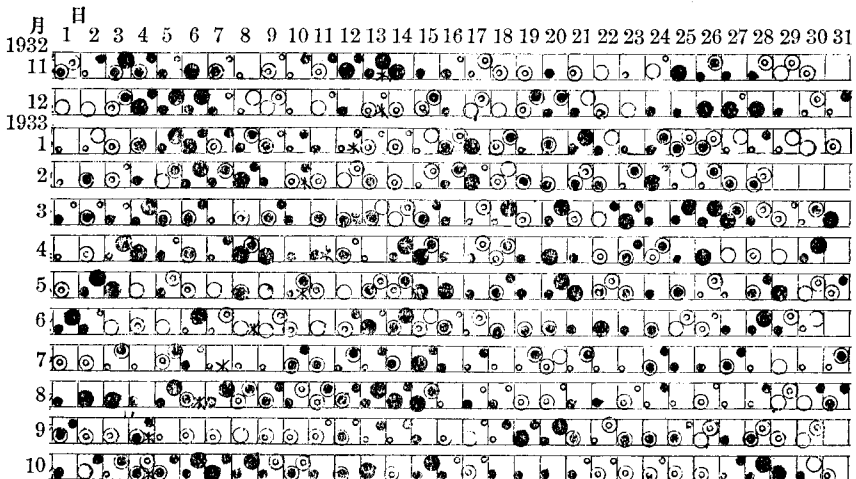 日
月 1 2 3 4 5 6 7 8 9 10 11 12 13 14 15 16 17 18 19 20 21 22 23 24 25 26 27 28 29 30 31
1932
11
12
1933
1
2
3
4
5
6
7
8
9
10